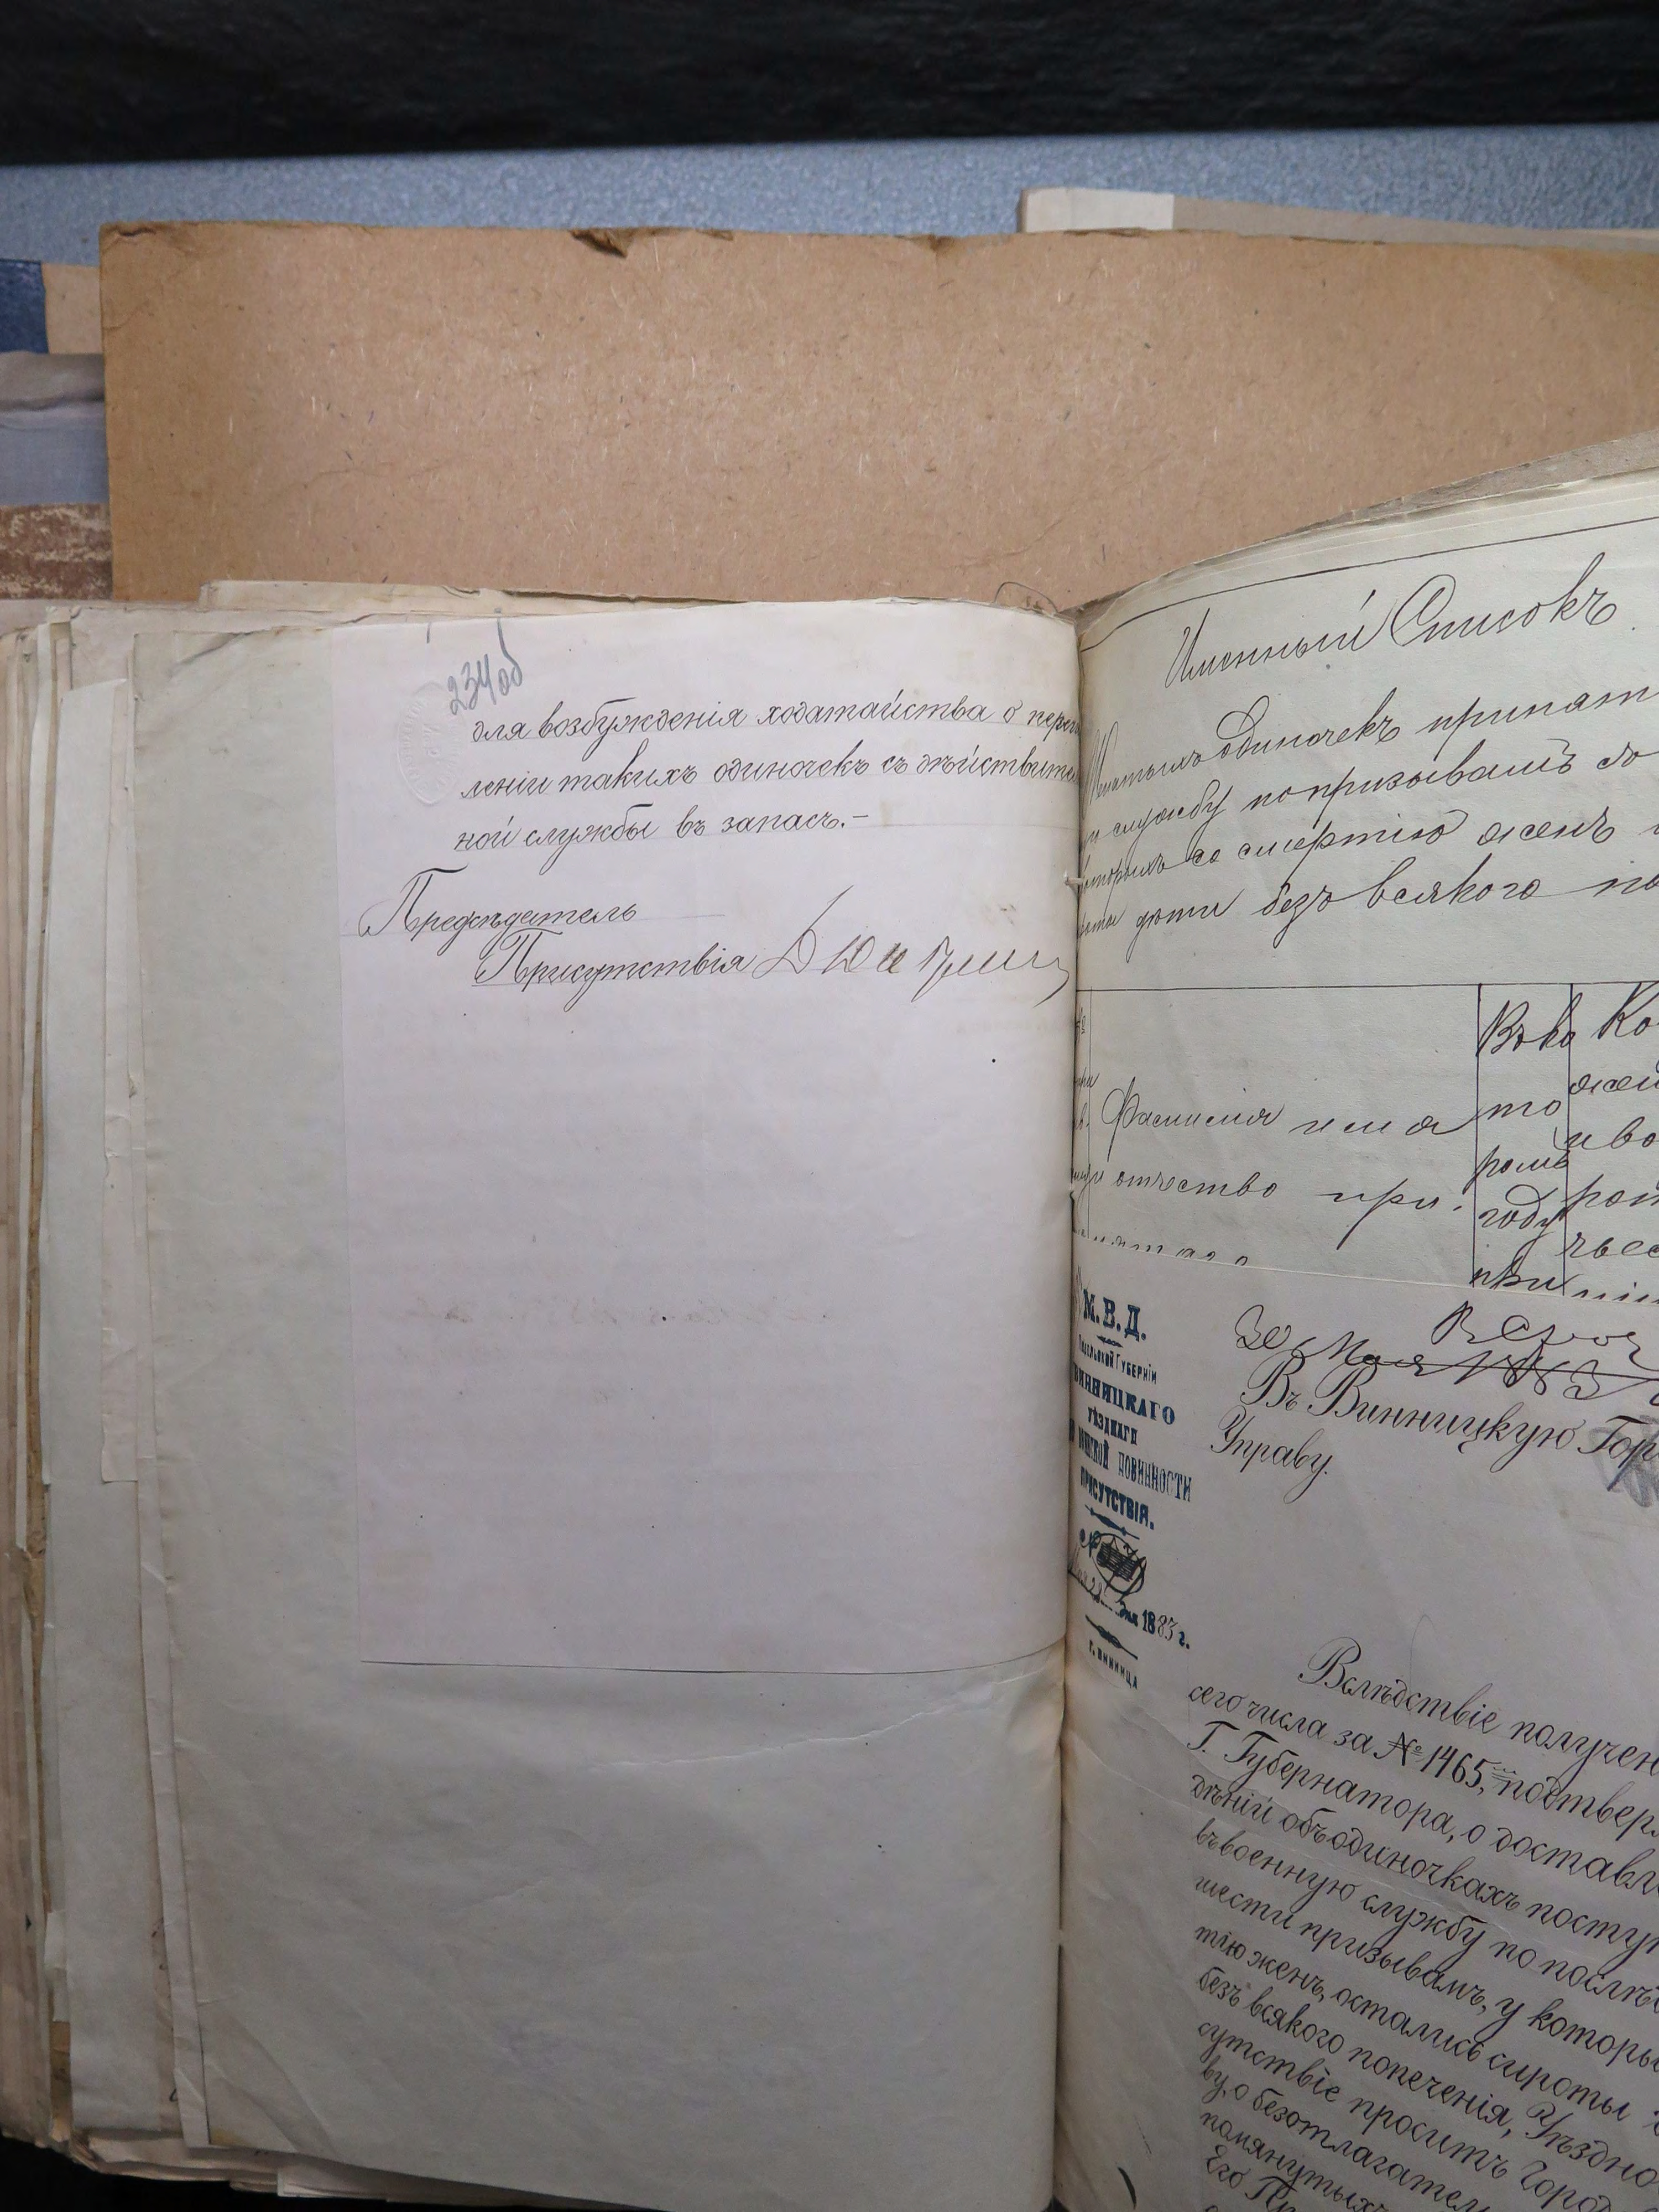 234об
для возбужденія ходатайства о переч
леніи такихъ одиночекъ съ дѣйствите
ной службы въ запасъ.—
Предсѣдатель
Присутствія
Именный Списокъ
одиночекъ принят
службу по призывамъ
со смертію женъ
дѣти безъ всякого по
Фамилія имя
отчество при-
Въ ко
то
ромъ
году
М.В.Д.
Подольской Губерніи
ВИННИЦКАГО
УѢЗДНАГО
ВОИНСКОЙ ПОВИННОСТИ
ПРИСУТСТВІЯ.
№
дня 1883 г.
г. ВИННИЦА
30 Мая 1883
Въ Винницкую Гор
Управу.
Вслѣдствіе получен
сего числа за № 1465, подтвер
Г. Губернатора, о доставл
дѣній объ одиночкахъ посту
въ военную службу по послѣ
шести призывамъ, у которы
тію женъ, остались сироты
безъ всякого попеченія, Уѣздно
сутствіе проситъ Город
ву, о безотлагател
помянутых
Его